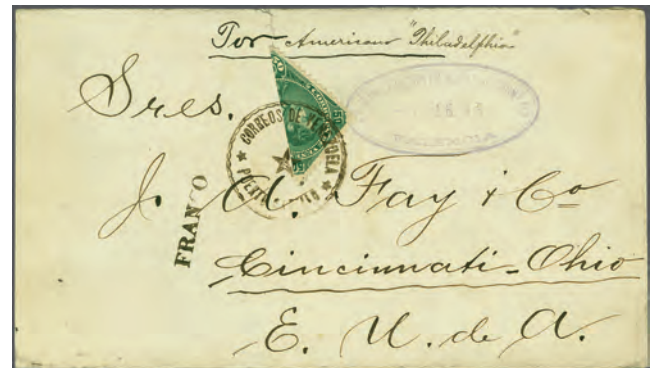 Por Americano "Philadelphia"
Sres.
50
50
CORREOS DE VENEZUELA
FRANCO
J. A. Fay & Co
Cincinnati - Ohio
E. U. de A.
16
VALENCIA